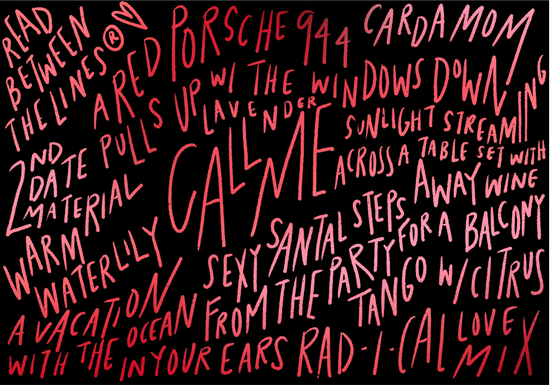 READ
BETWEEN
THE LINES® ♡
A RED PORSCHE 944
PULLS UP W/ THE WINDOWS DOWN
CARDAMOM
LAVENDER
CALL ME
SUNLIGHT STREAMING
ACROSS A TABLE SET WITH
WINE
2ND
DATE
MATERIAL
WARM
WATERLILY
SEXY SANTAL STEPS AWAY
FROM THE PARTY FOR A BALCONY
TANGO W/ CITRUS
A VACATION
WITH THE OCEAN
IN YOUR EARS
RAD-I-CAL LOVE
MIX